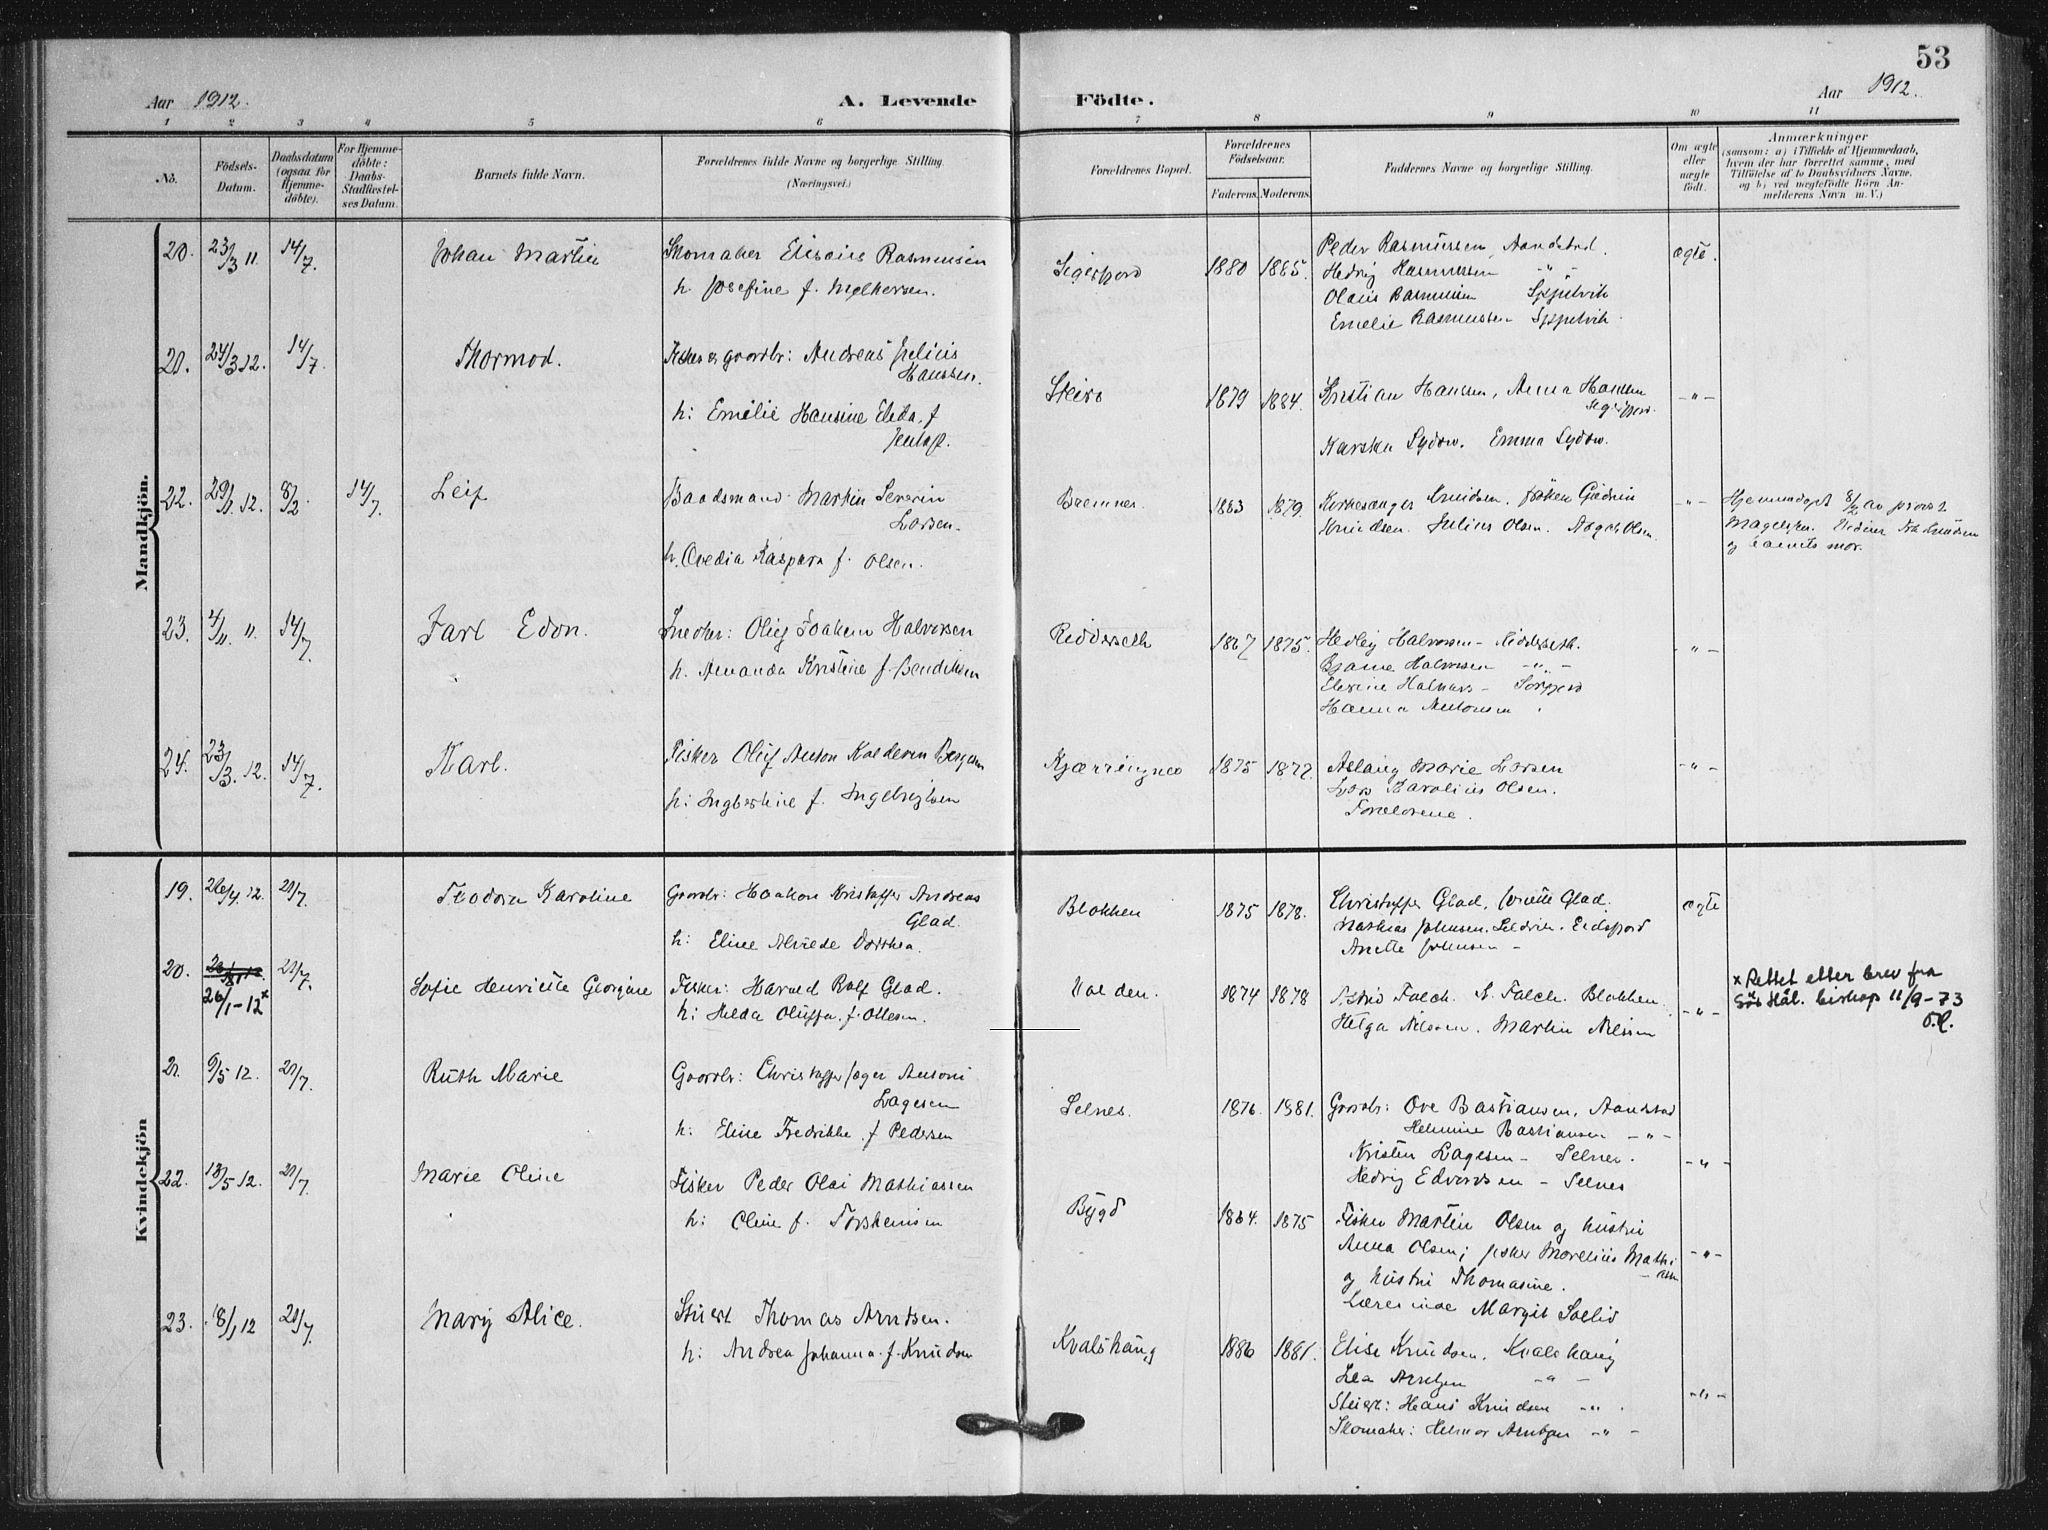 53
Aar 1912. A. Levende Födte. Aar 1912.
1 2 3 4 5 6 7 8 9 10 11
No.
Födsels-Datum.
Daabsdatum (ogsaa for Hjemme-döbte).
For Hjemme-döbte: Daabs-Stadfæstel-ses Datum.
Barnets fulde Navn.
Forældrenes fulde Navne og borgerlige Stilling. (Næringsvei.)
Forældrenes Bopæl.
Forældrenes Födselsaar.
Faderens. Moderens.
Faddernes Navne og borgerlige Stilling.
Om ægte eller uægte födt.
Anmærkninger
(saasom: a) i Tilfælde af Hjemmedaab,
hvem der har forrettet samme, med
Tilföielse af to Daabsvidners Navne,
og b) ved uægtefödte Börn An-
melderens Navn m. V.)
Mandkjön.
20. 23/3 11. 14/7. Johan Martin Skomaker Elisæus Rasmussen
h. Josefine f. Melkersen.
Sigerfjord 1880 1885. Peder Rasmussen, Aandstad. ægte.
Hedvig Rasmussen -"-
Olaus Rasmussen
Emelie Rasmussen
21. 24/3 12. 14/7. Thormod. Fisker og gaardbr: Andreas Julius
Hanssen.
h: Emelie Hansine Eleda, f
Steiro 1879 1884. Kristian Hansen, Anna Hansen
Sigerfjord.
Sydow. Emma Sydow.
22. 29/1 12. 8/2. 14/7. Leif Baadsmand Martin Severin
Larsen.
h. Ovedia Kaspara f. Olsen.
Bremnes. 1883 1879. Kirkesanger Knudsen, frøken
Knudsen. Julius Olsen. Aagot Olsen. -"-
Hjemmedøpt 8/2 av provst
og barnets mor.
23. 4/11 11. 14/7. Jarl Edon. Snedker: Oluf Joakim Halvorsen
h. Amanda Kristine f. Bendiksen
Ridderseth 1867 1875. Hedley Halvorsen - Ridderseth.
Bjarne Halvorsen -"-
Sörfjord
Hanna Antonsen -"-
24. 23/3. 12. 14/7. Karl. Fisker Oluf Anton Kaldevin Borgesen
h: Ingbertine f. Ingebrigtsen
Kjærringnes 1875 1877 Aslaug Marie Larsen
Lars Karolius Olsen.
Forældrene. -"-
Kvindekjön
19. 26/4 12. 21/7. Teodora Karoline Gaardbr: Haakon Kristoffer Andreas
Glad.
h: Eline Alvilde Dorthea.
Blokken 1875 1878. Christoffer Glad, Glad. ægte
Mathias Johnsen. Eidsfjord
Anette Johnsen -
20. 21/7. 26/1-12x Sofie Henriette Georgine Fisker: Harald Rolf Glad.
h: Helda Oluffa. f. Ottesen.
1874 1878 Astrid Falch. A. Falch. Blokken.
Helga Nilssen. Martin Nilssen -"-
x Rettet etter brev fra
Sör Hål. biskop 11/9-73
21. 9/5 12. 21/7. Ruth Marie Gaardbr: Christoffer Jæger Antoni
Lagesen
h: Eline Fredrikke f Pedersen
Selnes. 1876. 1881. Gaardbr: Ove Bastiansen, Aandstad
Helmine Bastiansen -"-
Kristen Lagesen - Selnes.
Hedvig Edvardsen - Selnes -"-
22. 13/5 12. 21/7. Marie Oline Fisker Peder Olai Mathiassen
h: Oline f. Torsteinsen
Bygd 1864. 1875 Fisker Martin Olsen og hustru
Anna Olsen; fisker Morelius Mathi-
assen
og hustru Thomasine.
Lærerinde Margit Sollid -"-
23. 18/1 12 21/7. Mary Alice. Stuert Thomas Arntsen.
h: Andrea Johanna f. Knudsen
Kvalshaug 1886 1881. Elise Knudsen. Kvalshaug
Lea Arntzen -"-
Stuert: Hans Knudsen -"-
Skomaker: Helmer Arntzen -"- -"-